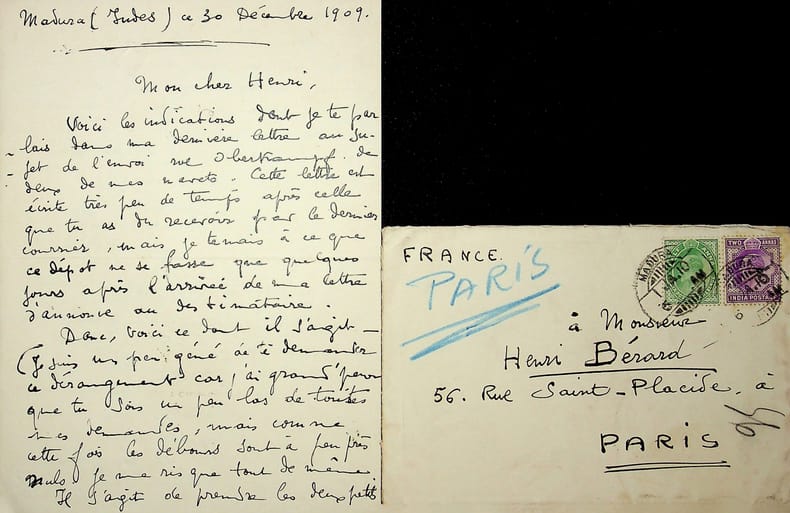 Madura (Indes) ce 30 Décembre 1909.
Mon cher Henri,
Voici les indications dont je te par
lais dans ma dernière lettre au su-
jet de l'envoi rue Oberkampf. de
deux de mes navets. Cette lettre est
écrite très peu de temps après celle
que tu as dû recevoir par le dernier
courrier, mais je tenais à ce que
ce dépôt ne se fasse que quelques
jours après l'arrivée de ma lettre
d'annonce au destinataire.
Donc, voici ce dont il s'agit —
(Je suis un peu gêné de te demander
ce dérangement car j'ai grand'peur
que tu sois un peu las de toutes
mes demandes, mais comme
cette fois les débours sont à peu près
nuls je me risque tout de même
Il s'agit de prendre les deux petits
FRANCE.
PARIS
TWO ANNAS
INDIA POSTA
à Monsieur
Henri Bérard
56. Rue Saint-Placide, à
PARIS